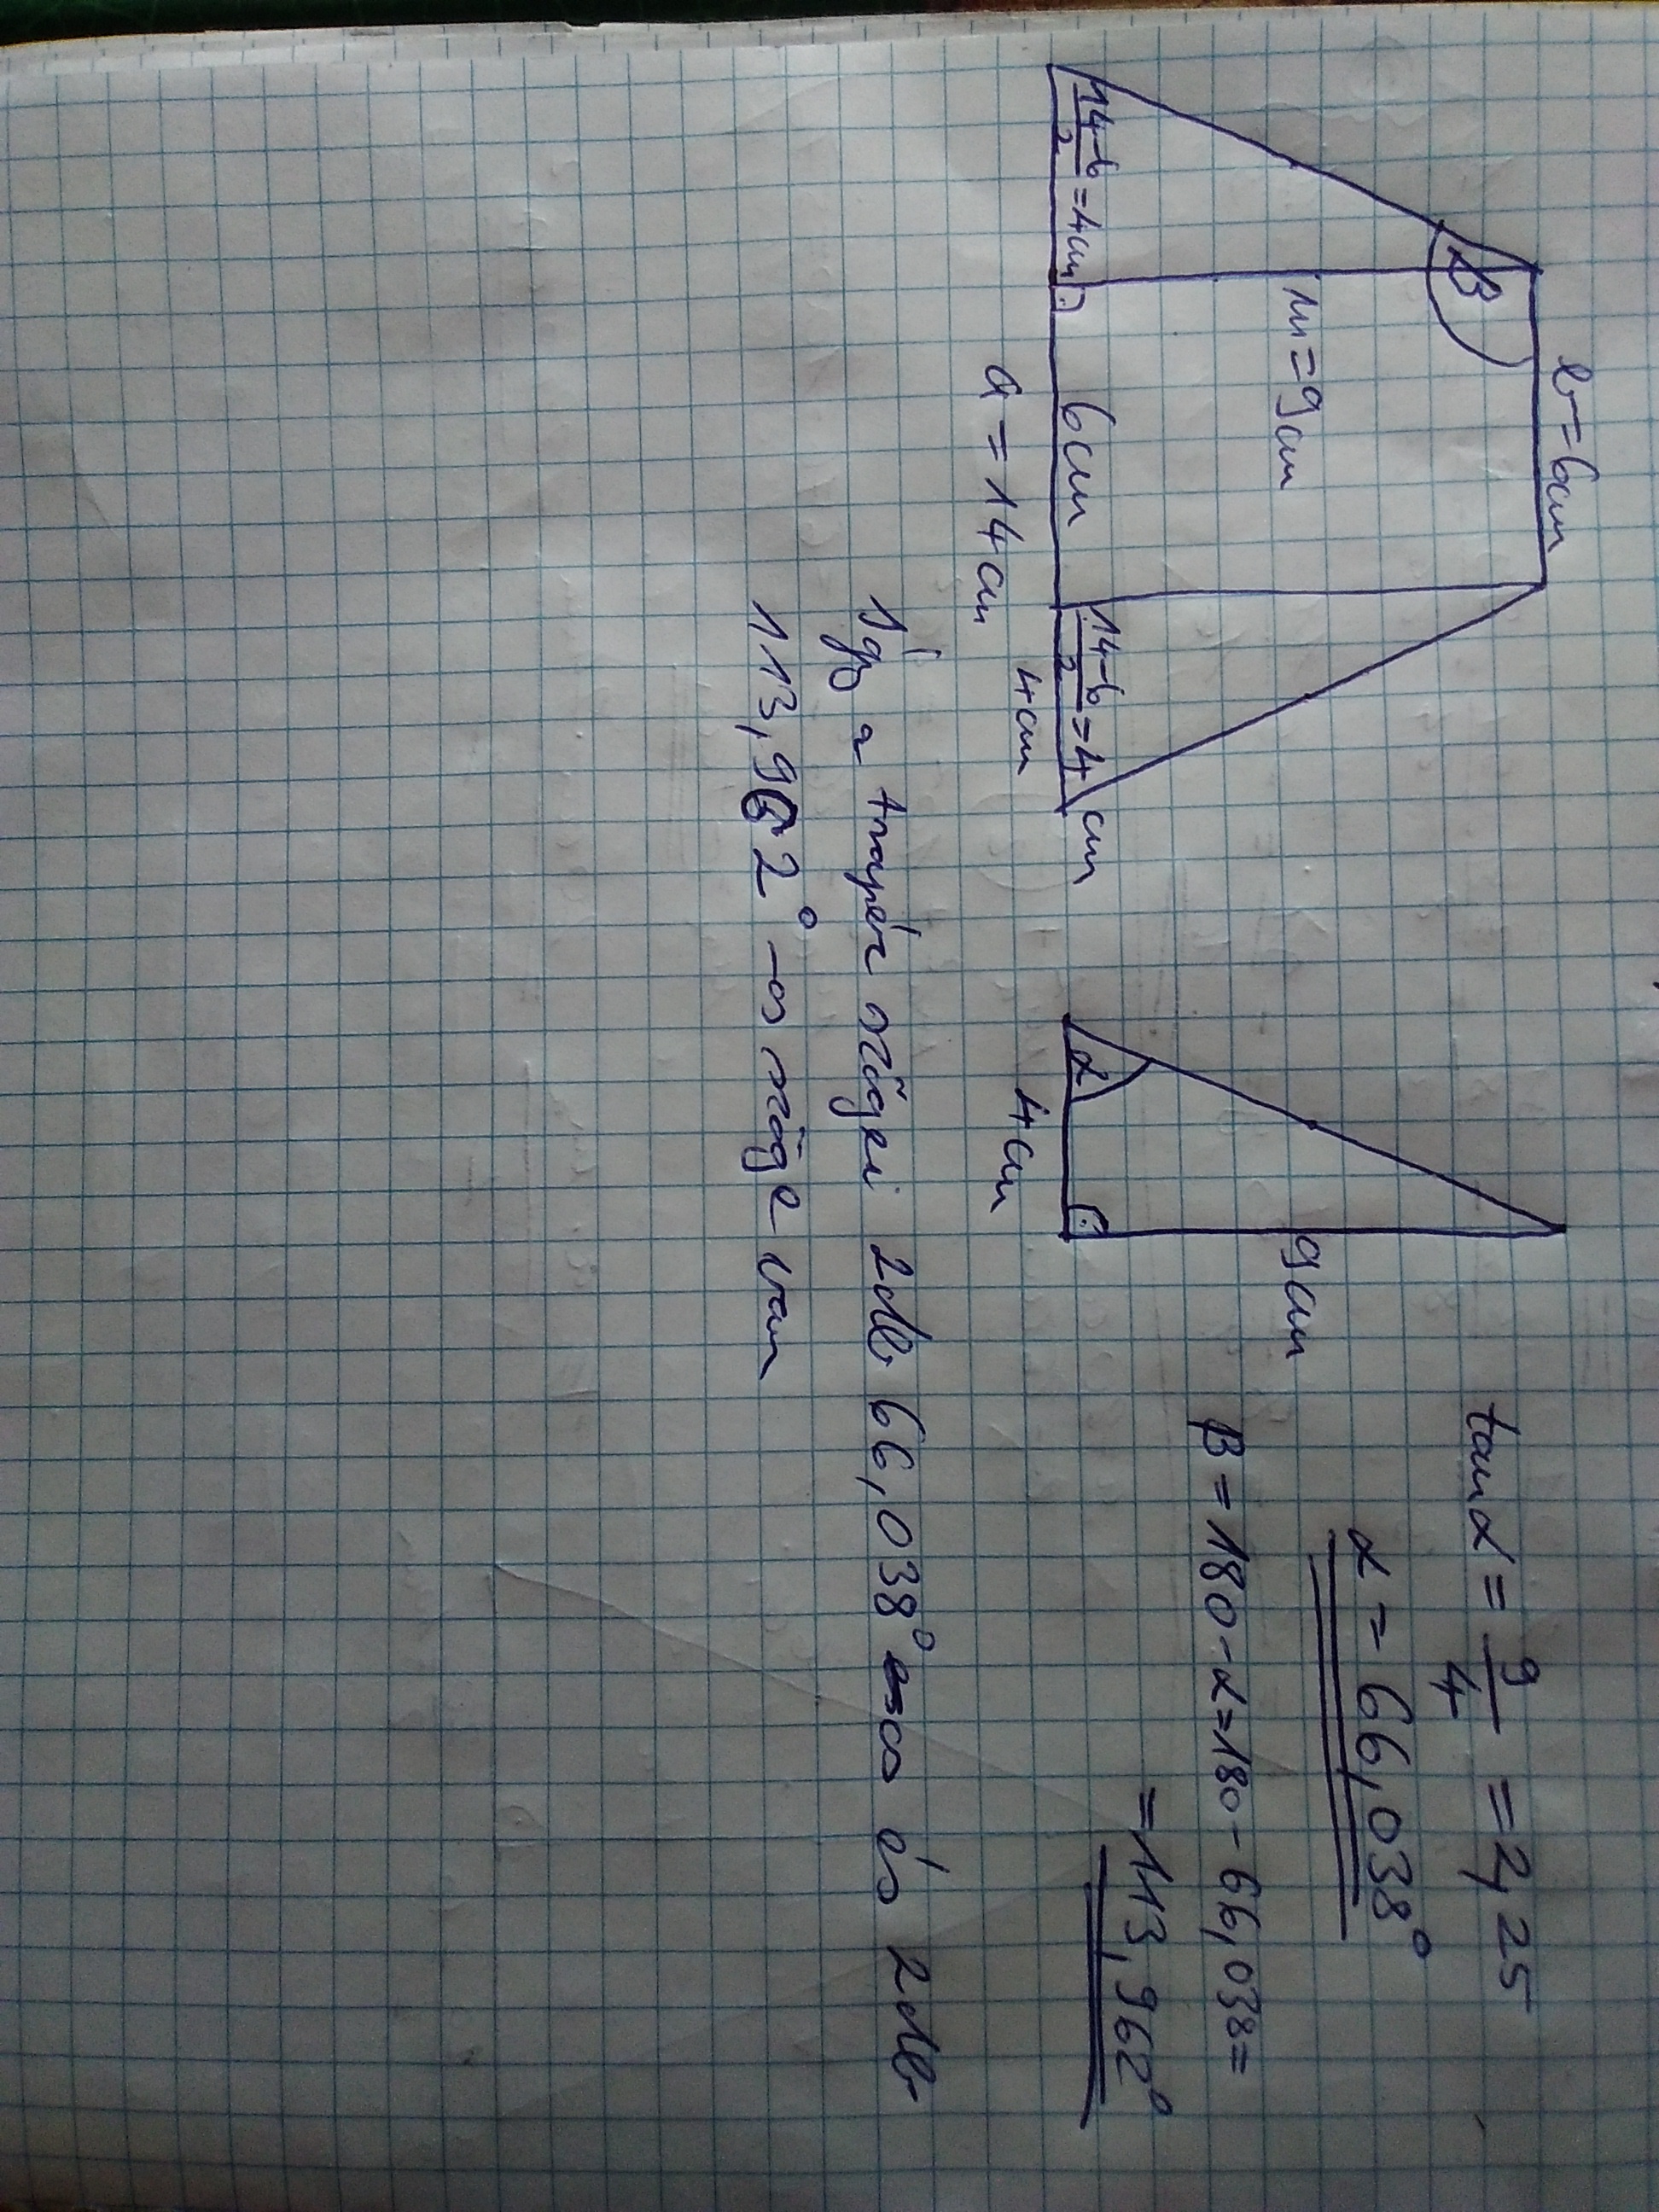 b=6cm
m=9cm
β
14-6/2=4cm
6cm
14-6/2=4cm
4cm
a=14cm
9cm
α
4cm
tanα=9/4=2,25
α=66,038°
β=180-α=180-66,038=
=113,962°
Így a trapéz szögei 2db 66,038° os és 2db
113,962°-os szöge van